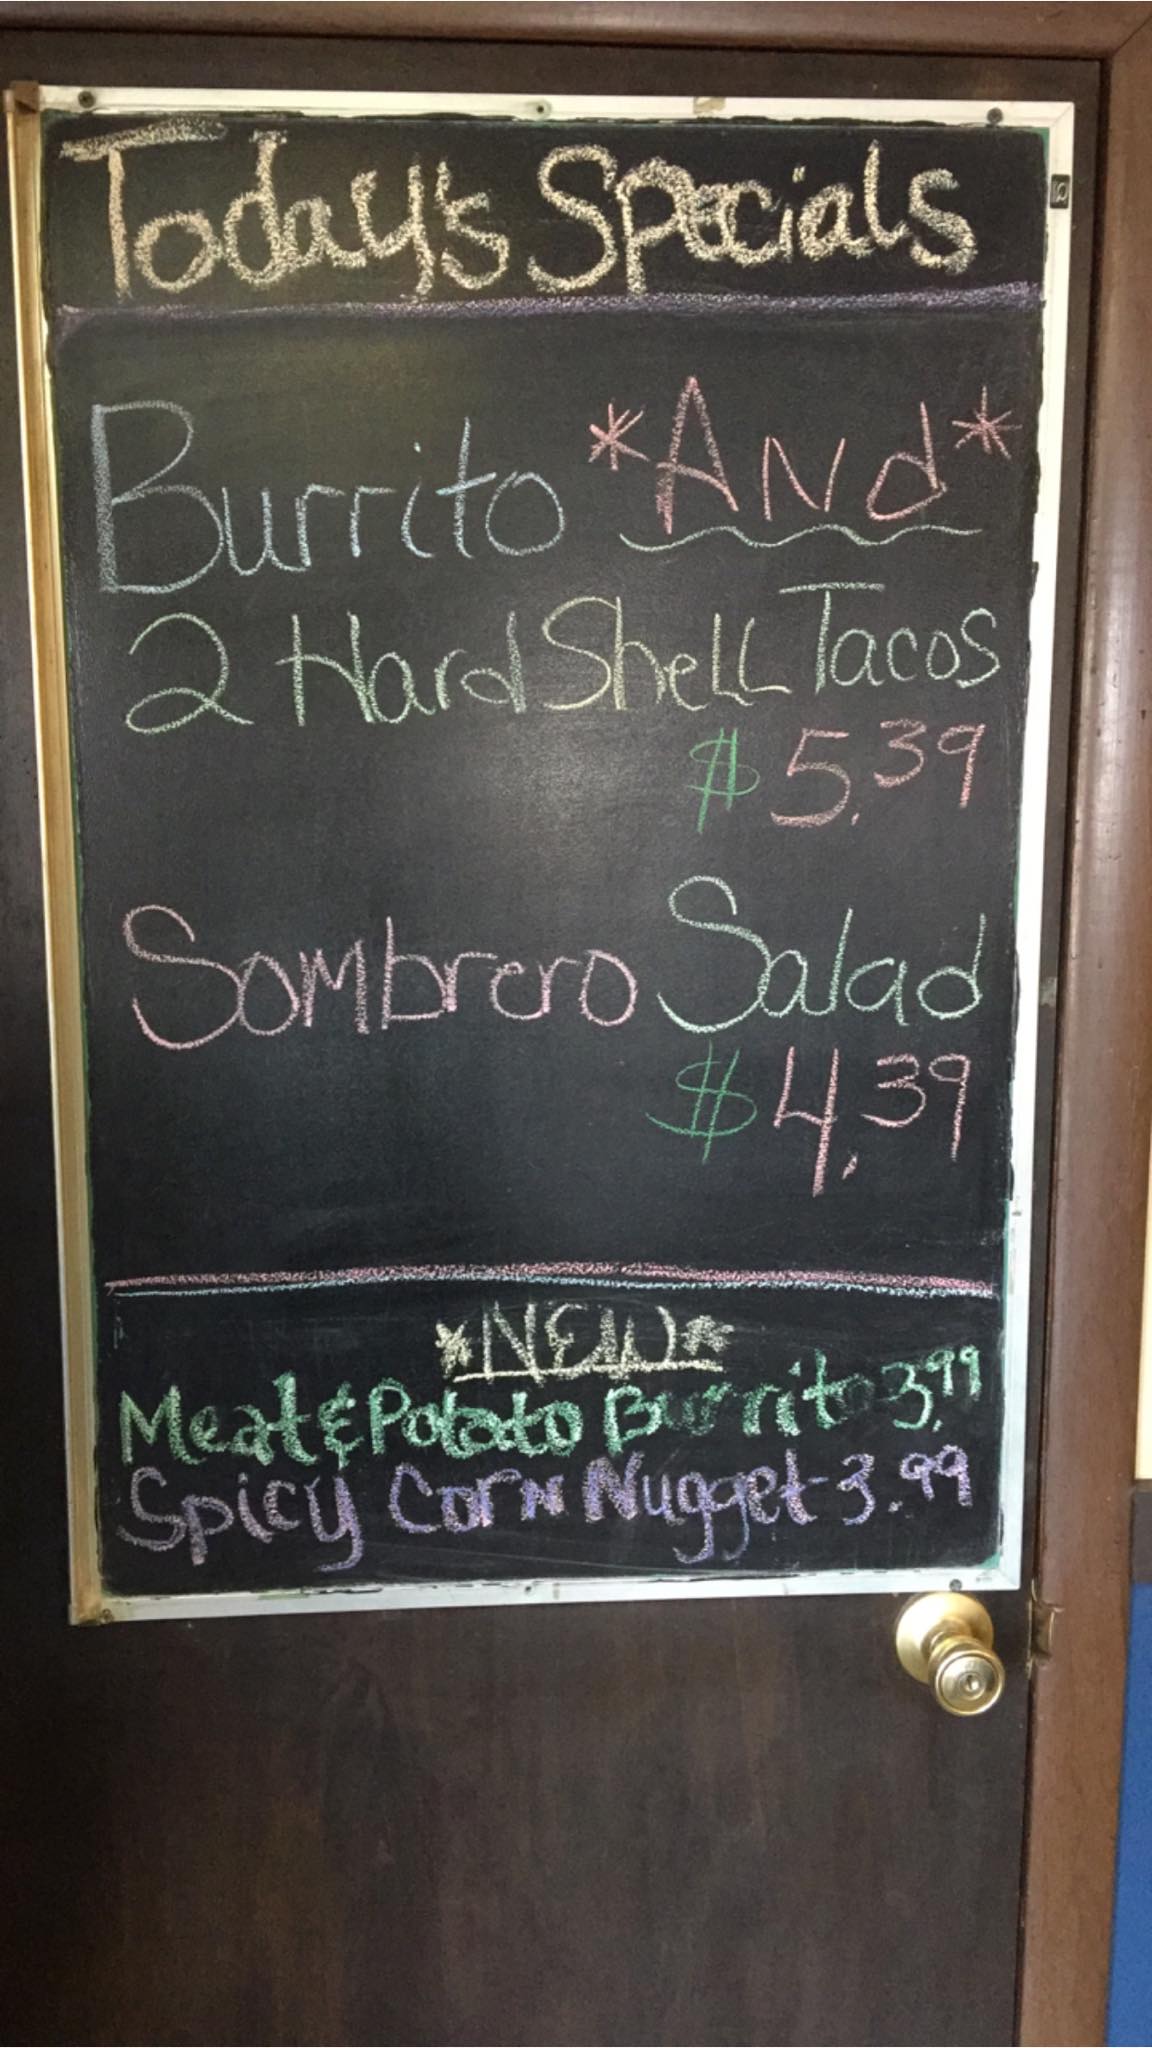 Today's Specials
Burrito *And*
2 Hard Shell Tacos
$5.39
Sombrero Salad
$4.39
*NEW*
Meat & Potato Burrito 3.99
Spicy Corn Nugget 3.99